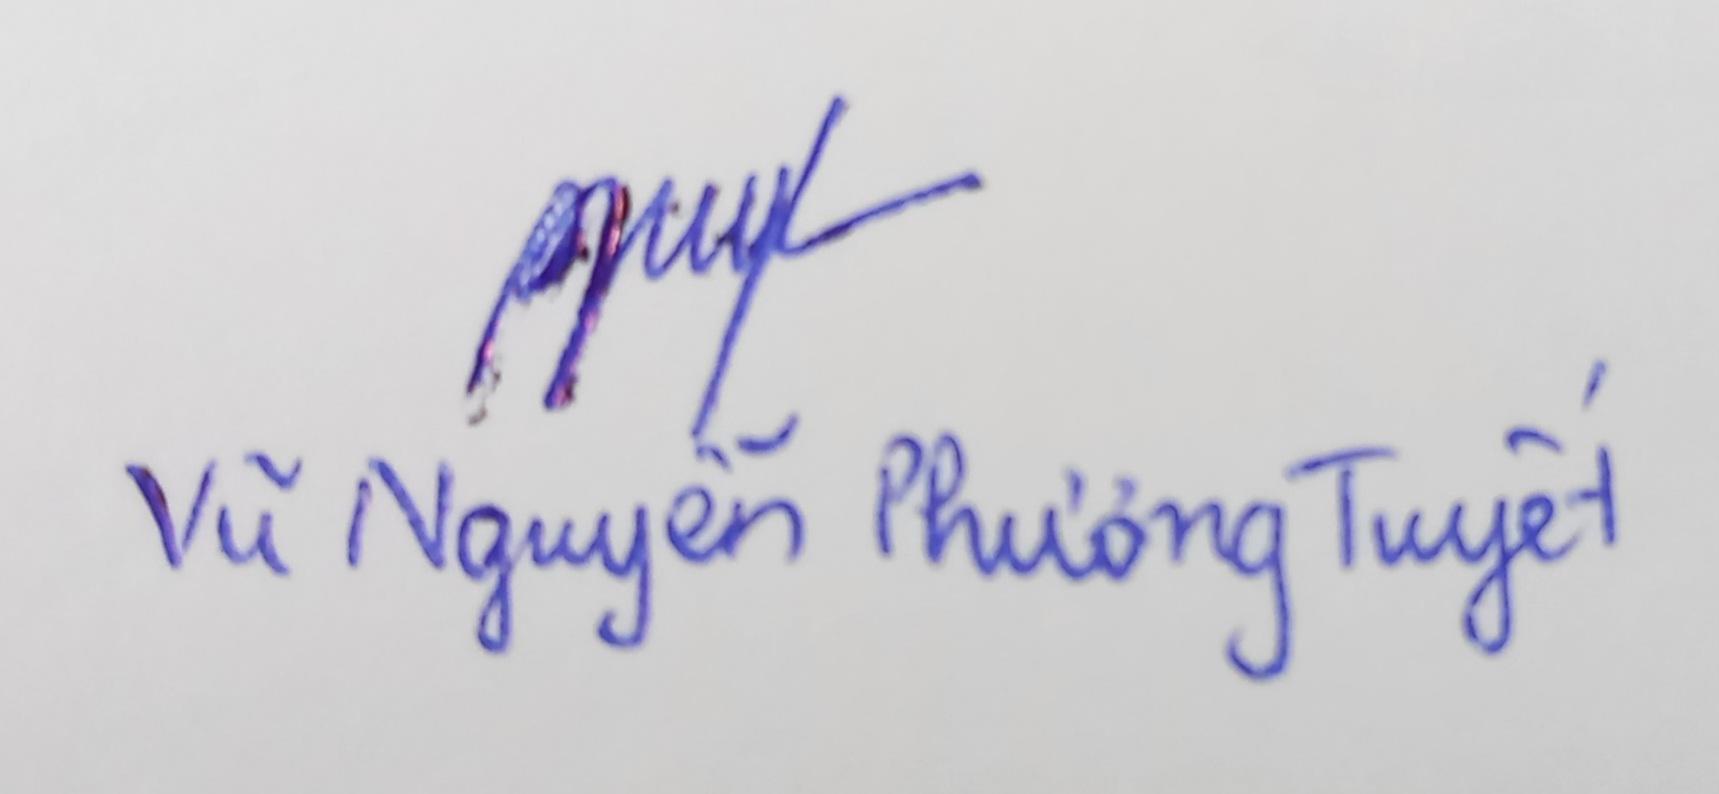 Vũ Nguyễn Phương Tuyết